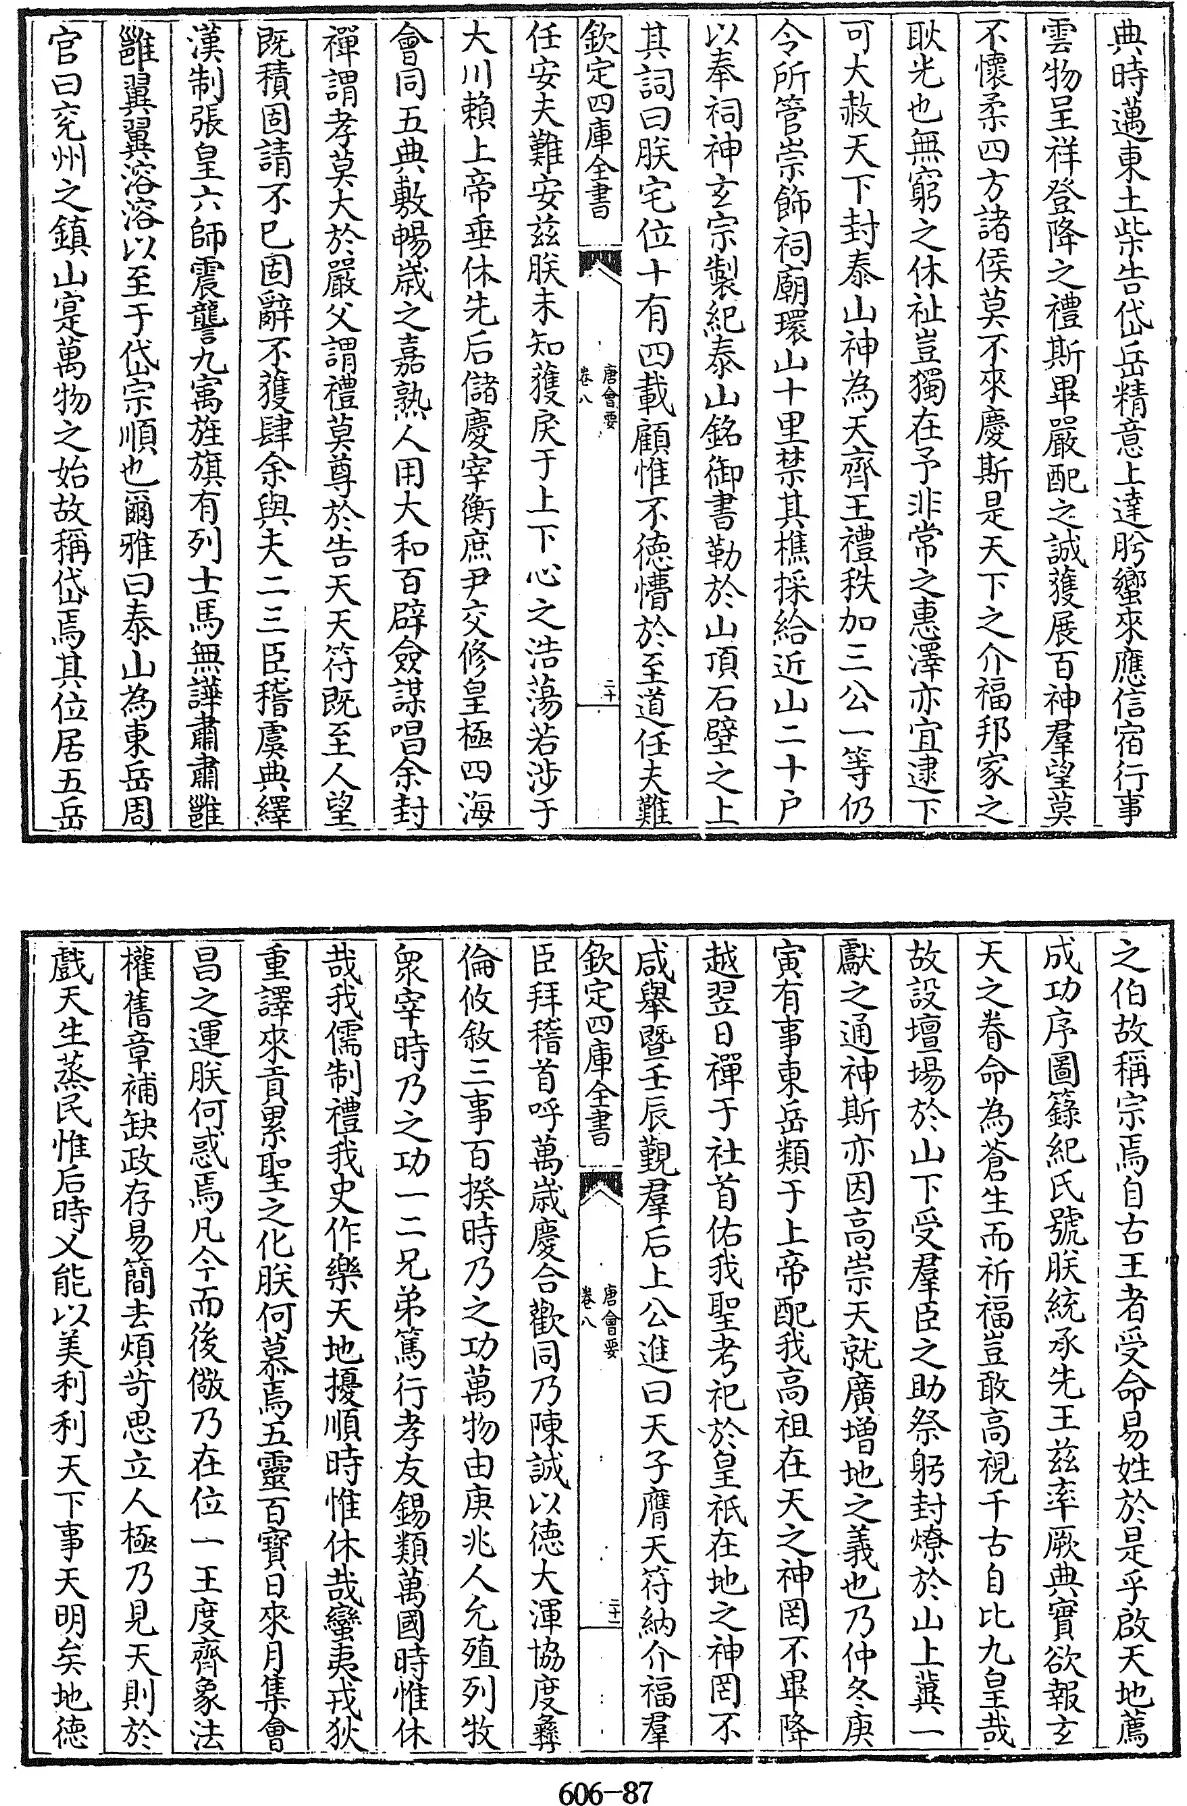 典時邁東土柴告岱岳精意上達肸蠁來應信宿行事
雲物呈祥登降之禮斯畢嚴配之誠獲展百神羣望莫
不懷柔四方諸侯莫不來慶斯是天下之介福邦家之
耿光也無窮之休祉豈獨在予非常之惠澤亦宜逮下
可大赦天下封泰山神為天齊王禮秩加三公一等仍
令所管崇飾祠廟環山十里禁其樵採給近山二十户
以奉祠神玄宗製紀泰山銘御書勒於山頂石壁之上
其詞曰朕宅位十有四載顧惟不德懵於至道任夫難
欽定四庫全書
唐會要
卷八
二十
任安夫難安兹朕未知獲戾于上下心之浩蕩若涉于
大川賴上帝垂休先后儲慶宰衡庶尹交修皇極四海
會同五典敷暢歲之嘉熟人用大和百辟僉謀唱余封
禪謂孝莫大於嚴父謂禮莫尊於告天天符既至人望
既積固請不已固辭不獲肆余與夫二三臣稽虞典繹
漢制張皇六師震讋九寓旌旗有列士馬無譁肅肅雝
雝翼翼溶溶以至于岱宗順也爾雅曰泰山為東岳周
官曰兖州之鎮山寔萬物之始故稱岱焉其位居五岳
之伯故稱宗焉自古王者受命易姓於是乎啟天地薦
成功序圖籙紀氏號朕統承先王兹率厥典實欲報玄
天之眷命為蒼生而祈福豈敢高視千古自比九皇哉
故設壇場於山下受羣臣之助祭躬封燎於山上冀一
獻之通神斯亦因高崇天就廣增地之義也乃仲冬庚
寅有事東岳類于上帝配我高祖在天之神罔不畢降
越翌日禪于社首佑我聖考祀於皇祇在地之神罔不
咸舉暨壬辰覲羣后上公進曰天子膺天符納介福羣
欽定四庫全書
唐會要
卷八
二十一
臣拜稽首呼萬歲慶合歡同乃陳誠以德大渾協度彝
倫攸敘三事百揆時乃之功萬物由庚兆人允殖列牧
衆宰時乃之功一二兄弟篤行孝友錫類萬國時惟休
哉我儒制禮我史作樂天地擾順時惟休哉蠻夷戎狄
重譯來貢累聖之化朕何慕焉五靈百寳日來月集會
昌之運朕何惑焉凡今而後儆乃在位一王度齊象法
權舊章補缺政存易簡去煩苛思立人極乃見天則於
戲天生蒸民惟后時乂能以美利利天下事天明矣地德
606-87